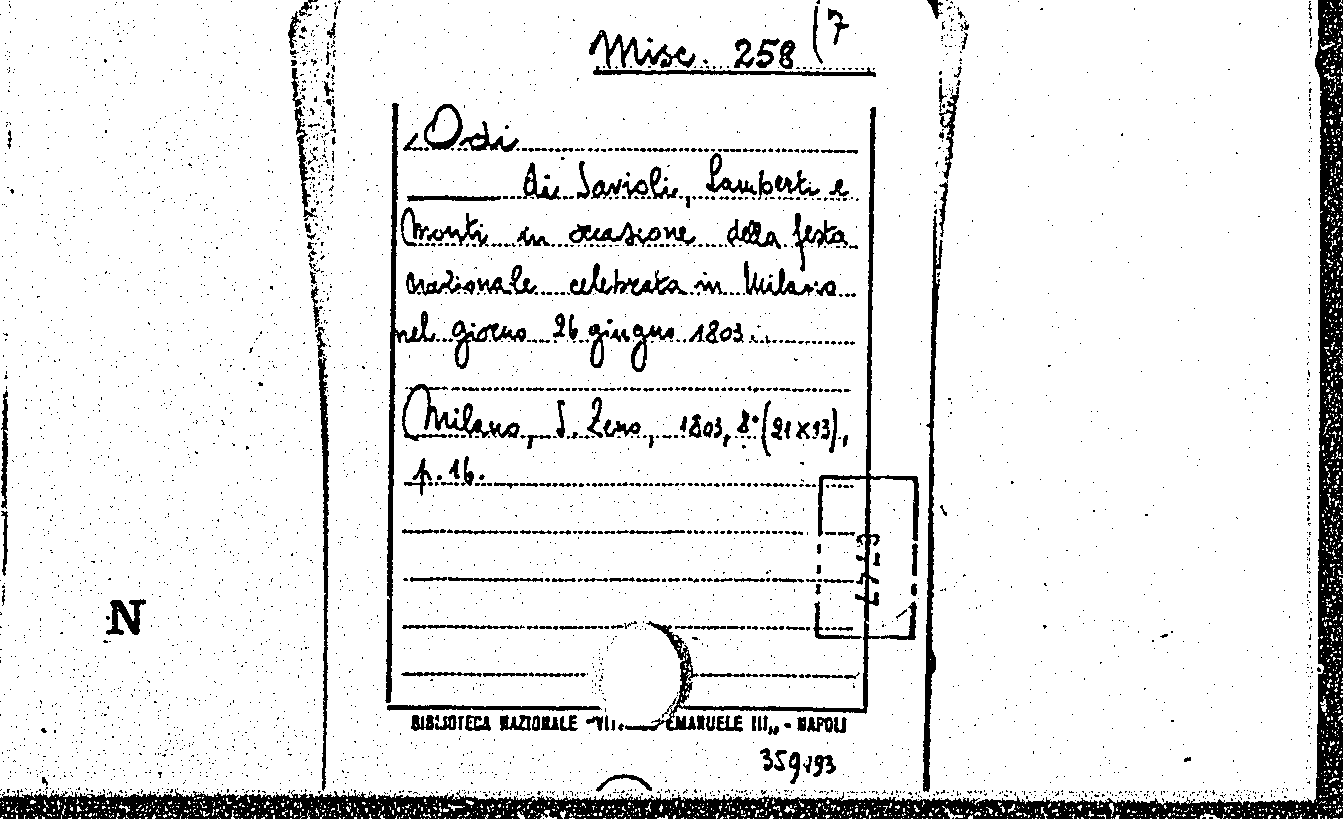 Misc. 258 (7
Odi
di Savioli, Lamberti e
Monti in occasione della festa
nazionale celebrata in Milano
nel giorno 26 giugno 1803.
Milano, S. Zeno, 1803, 8° (21x13),
p. 16.
N
BIBLIOTECA NAZIONALE "VI EMANUELE III„ - NAPOLI
359193